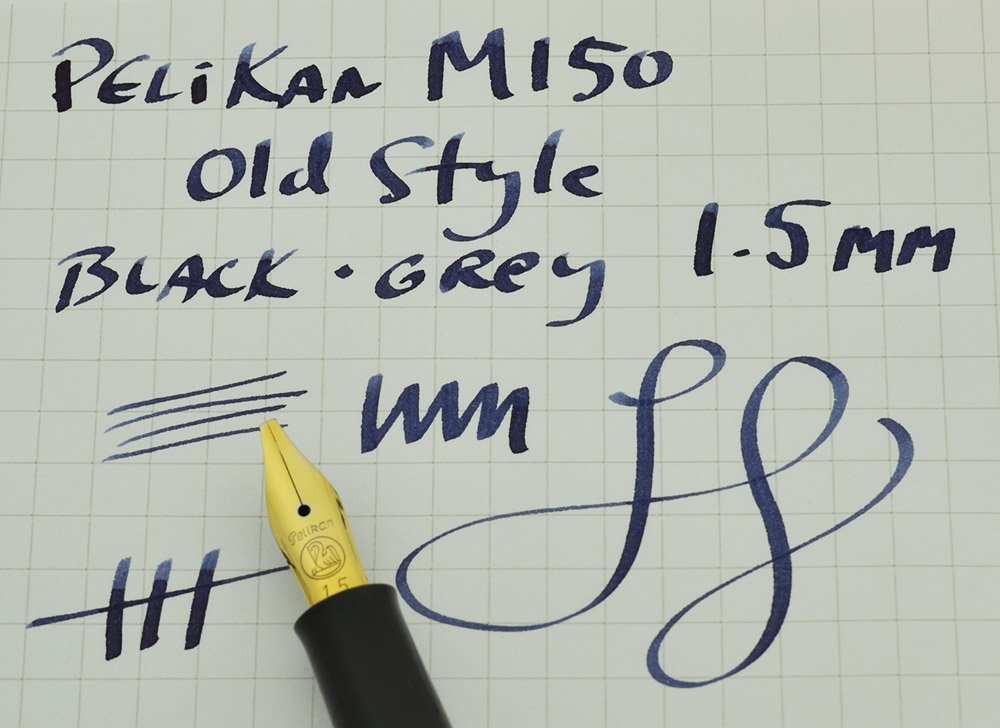 PELiKAN M150
Old Style
BLACK · GREY 1.5mm
Pelikan
1.5